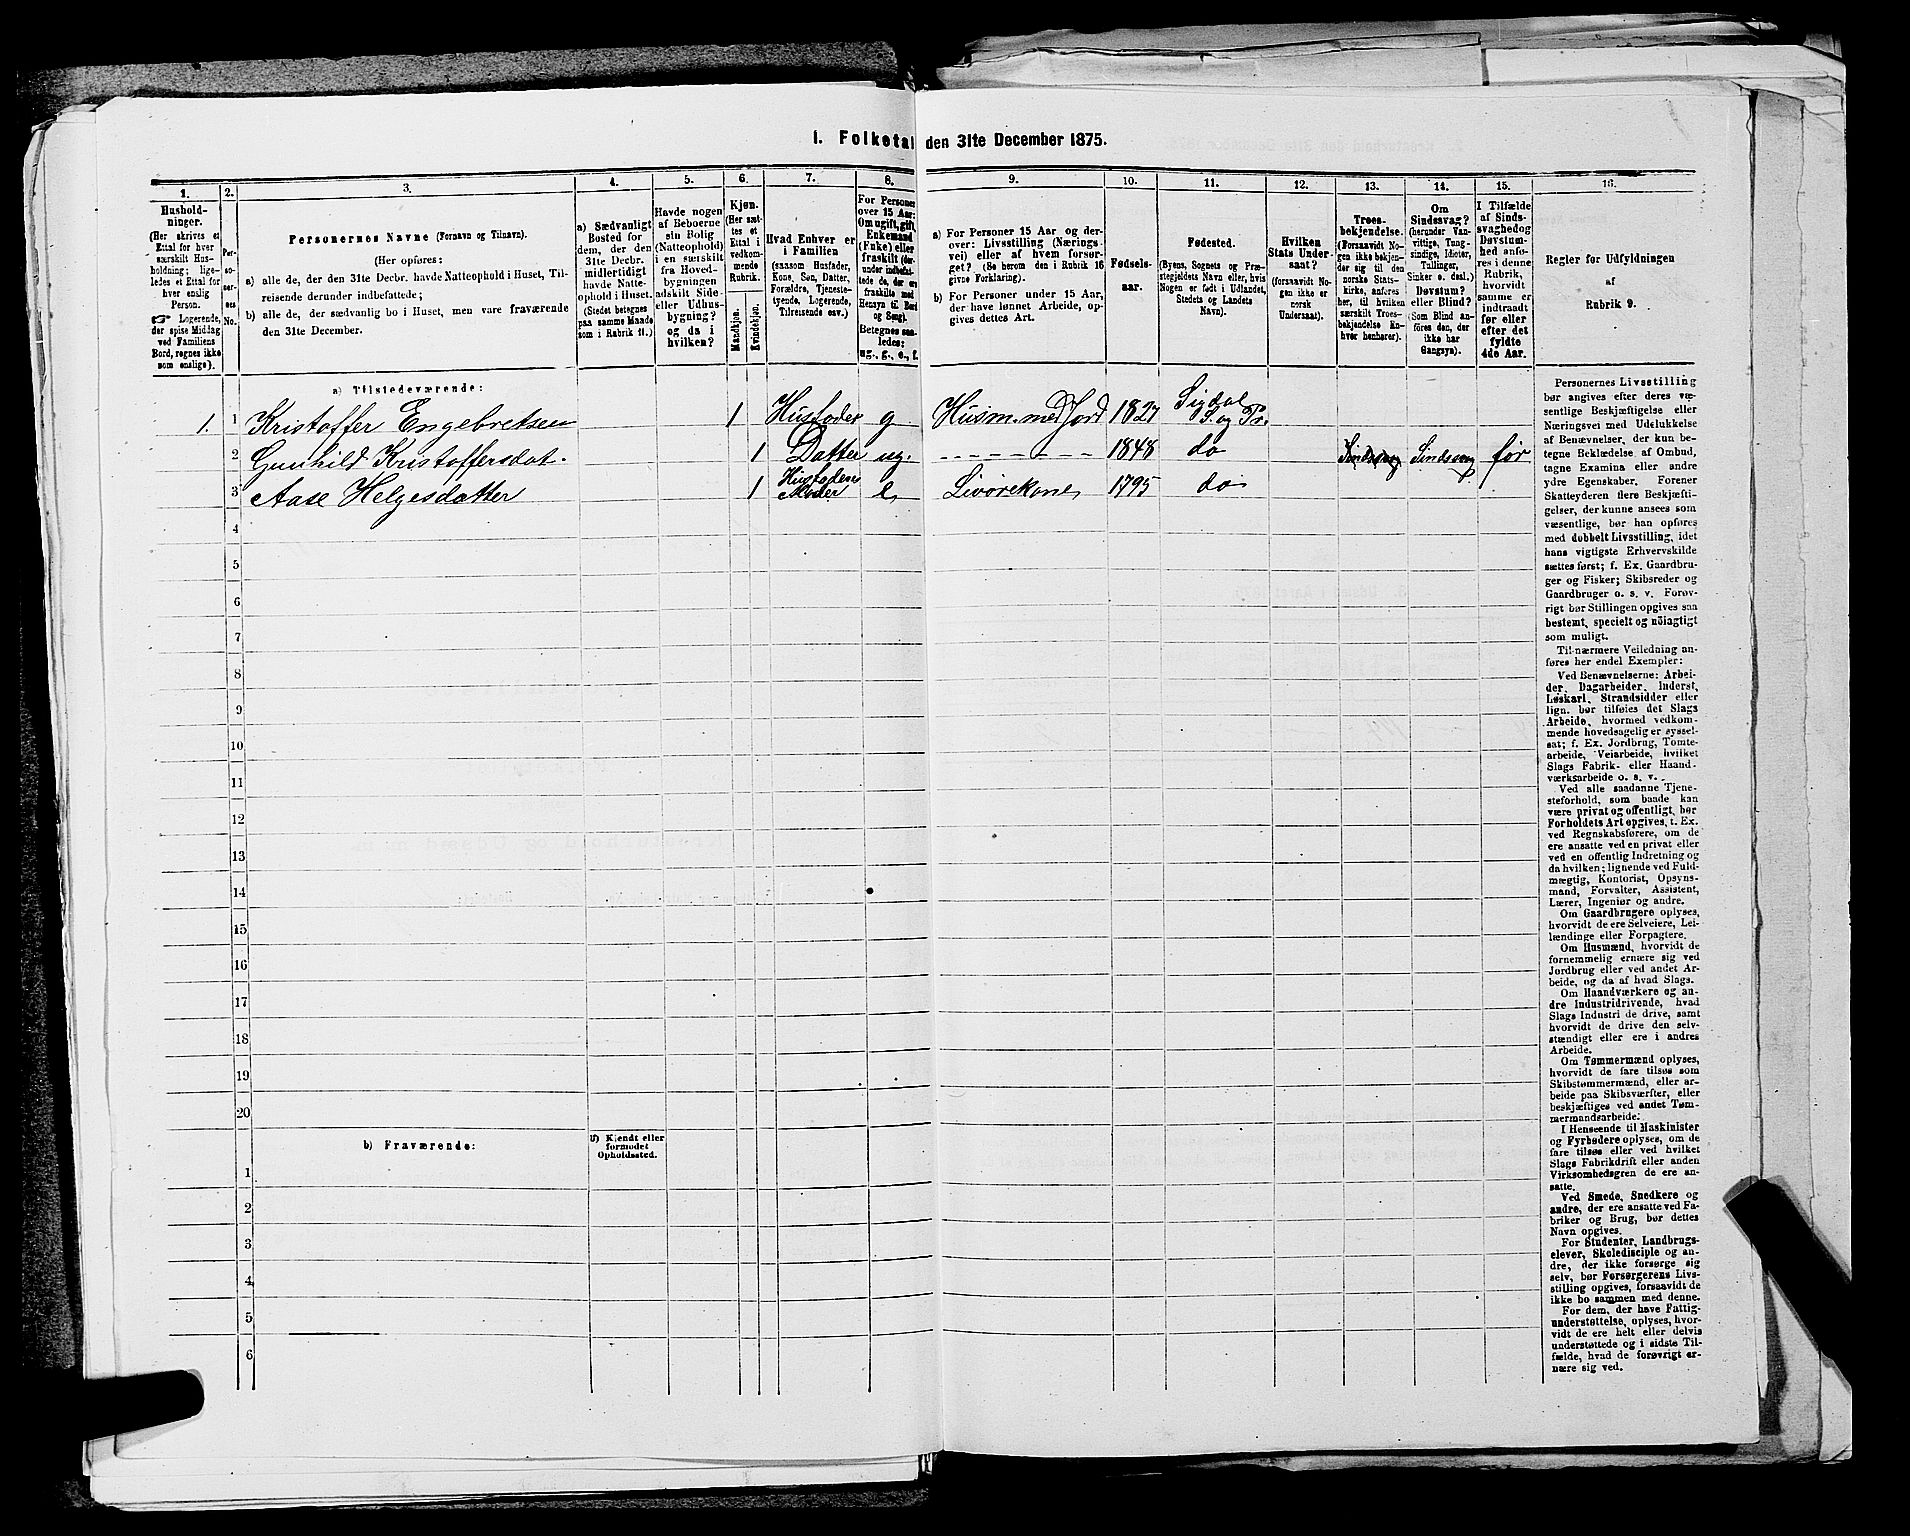 1. Folketal den 31te December 1875.
1. 2. 3. 4. 5. 6. 7. 8. 9. 10. 11. 12. 13. 14. 15. 16.
Hushold-
ninger.
(Her skrives et
Ettal for hver
særskilt Hus-
holdning; lige-
ledes et Ettal for
hver enslig
Person.
☞ Logerende,
der spise Middag
ved Familiens
Bord, regnes ikke
som enslige).
Per-
so-
ner-
nes
No.
Personernes Navne (Fornavn og Tilnavn).
(Her opføres:
a) alle de, der den 31te Decbr. havde Natteophold i Huset, Til-
reisende derunder indbefattede;
b) alle de, der sædvanlig bo i Huset, men vare fraværende
den 31te December.
a) Sædvanligt
Bosted for
dem, der den
31te Decbr.
midlertidigt
havde Natte-
ophold i Huset.
(Stedet betegnes
paa samme Maade
som i Rubrik 11.)
Havde nogen
af Beboerne
sin Bolig
(Natteophold)
i en særskilt
fra Hoved-
bygningen
adskilt Side-
eller Udhus-
bygning?
og da i
hvilken?
Kjøn.
(Her sæt-
tes et
Ettal i
vedkom-
mende
Rubrik.
Mandkjøn.
Kvindekjøn.
Hvad Enhver er
i Familien
(saasom Husfader,
Kone, Søn, Datter,
Forældre, Tjeneste-
tyende, Logerende,
Tilreisende osv.)
For Personer
over 15 Aar:
Om ugift, gift,
Enkemand
(Enke) eller
fraskilt (der-
under indbefat-
tede de, der ere
fraskilte med
Hensyn til Bord
og Seng).
Betegnes saa-
ledes:
ug., g., e., f.
a) For Personer 15 Aar og der-
over: Livsstilling (Nærings-
vei) eller af hvem forsør-
get? (Se herom den i Rubrik 16
givne Forklaring).
b) For Personer under 15 Aar,
der have lønnet Arbeide, op-
gives dettes Art.
Fødsels-
aar.
Fødested.
(Byens, Sognets og Præ-
stegjeldets Navn eller, hvis
Nogen er født i Udlandet,
Stedets og Landets
Navn).
Hvilken
Stats Under-
saat?
(forsaavidt No-
gen ikke er
norsk
Undersaat).
Troes-
bekjendelse.
(Forsaavidt No-
gen ikke bekjen-
der sig til den
norske Stats-
kirke, anføres
her, til hvilken
særskilt Troes-
bekjendelse En-
hver henhører).
Om
Sindssvag?
(herunder Van-
vittige, Tung-
sindige, Idioter,
Tullinger,
Sinker o. desl.)
Døvstum?
eller Blind?
(Som Blind an-
føres den, der
ikke har
Gangsyn).
I Tilfælde
af Sinds-
svaghed og
Døvstum-
hed anfø-
res i denne
Rubrik,
hvorvidt
samme er
indtraadt
før eller
efter det
fyldte
4de Aar.
Regler for Udfyldningen
af
Rubrik 9.
a) Tilstedeværende:
1. 1 Kristoffer Engebretsen 1 Husfader g Husm. med Jord 1827 Sigdal S. og Pr.
2 Gunhild Kristoffersdat. 1 Datter ug. - - - - - - - 1848 do Sindssvag Sindssvag før
3 Aase Helgesdatter 1 Husfaderes Moder e Livørekone 1795 do
4
5
6
7
8
9
10
11
12
13
14
15
16
17
18
19
20
b) Fraværende:
b) Kjendt eller
formodet
Opholdssted.
1
2
3
4
5
6
Personernes Livsstilling
bør angives efter deres væ-
sentlige Beskjæftigelse eller
Næringsvei med Udelukkelse
af Benævnelser, der kun be-
tegne Beklædelse af Ombud,
tagne Examina eller andre
ydre Egenskaber. Forener
Skatteyderen flere Beskjæfti-
gelser, der kunne ansees som
væsentlige, bør han opføres
med dobbelt Livsstilling, idet
hans vigtigste Erhvervskilde
sættes først; f. Ex. Gaardbru-
ger og Fisker; Skibsreder og
Gaardbruger o. s. v. Forøv-
rigt bør Stillingen opgives saa
bestemt, specielt og nöiagtigt
som muligt.
Til nærmere Veiledning an-
føres her endel Exempler:
Ved Benævnelserne: Arbei-
der, Dagarbeider, Inderst,
Løskarl, Strandsidder eller
lign. bør tilføies det Slags
Arbeide, hvormed vedkom-
mende hovedsagelig er syssel-
sat; f. Ex. Jordbrug, Tomte-
arbeide, Veiarbeide, hvilket
Slags Fabrik- eller Haand-
værksarbeide o. s. v.
Ved alle saadanne Tjene-
steforhold, som baade kan
være privat og offentligt, bør
Forholdets Art opgives, t. Ex.
ved Regnskabsførere, om de
ere ansatte ved en privat eller
ved en offentlig Indretning og
da hvilken; lignende ved Fuld-
mægtig, Kontorist, Opsyns-
mand, Forvalter, Assistent,
Lærer, Ingeniør og andre.
Om Gaardbrugere oplyses,
hvorvidt de ere Selveiere, Lei-
lændinge eller Forpagtere.
Om Husmænd, hvorvidt de
fornemmelig ernære sig ved
Jordbrug eller ved andet Ar-
beide, og da af hvad Slags.
Om Haandværkere og an-
dre Industridrivende, hvad
Slags Industri de drive, samt
hvorvidt de drive den selv-
stændigt eller ere i andres
Arbeide.
Om Tømmermænd oplyses,
hvorvidt de fare tilsøs som
Skibstømmermænd, eller ar-
beide paa Skibsværfter, eller
beskjæftiges ved andet Tøm-
mermandsarbeide.
I Henseende til Maskinister
og Fyrbødere oplyses, om de
fare tilsøs eller ved hvilket
Slags Fabrikdrift eller anden
Virksomhedsgren de ere an-
satte.
Ved Smede, Snedkere og
andre, der ere ansatte ved Fa-
briker og Brug, bør dettes
Navn opgives.
For Studenter, Landbrugs-
elever, Skoledisciple og an-
dre, der ikke forsørge sig
selv, bør Forsørgerens Livs-
stilling opgives, forsaavidt de
ikke bo sammen med denne.
For dem, der have Fattig-
understøttelse, oplyses, hvor-
vidt de ere helt eller delvis
understøttede og i sidste Til-
fælde, hvad de forøvrigt er-
nære sig ved.